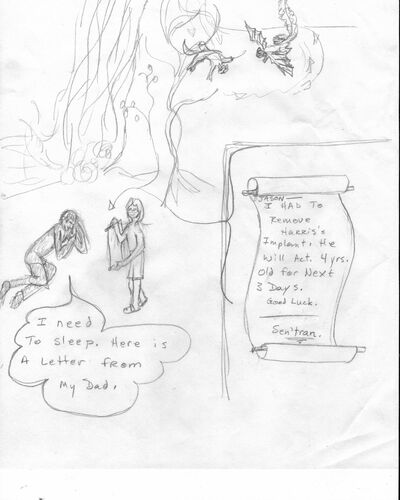 I need
To Sleep. Here is
A Letter from
My Dad.
JASON—
I HAD TO
Remove
HARRIS's
Implant. He
Will Act 4 yrs.
Old for Next
3 Days.
Good Luck.
Sen'tran.